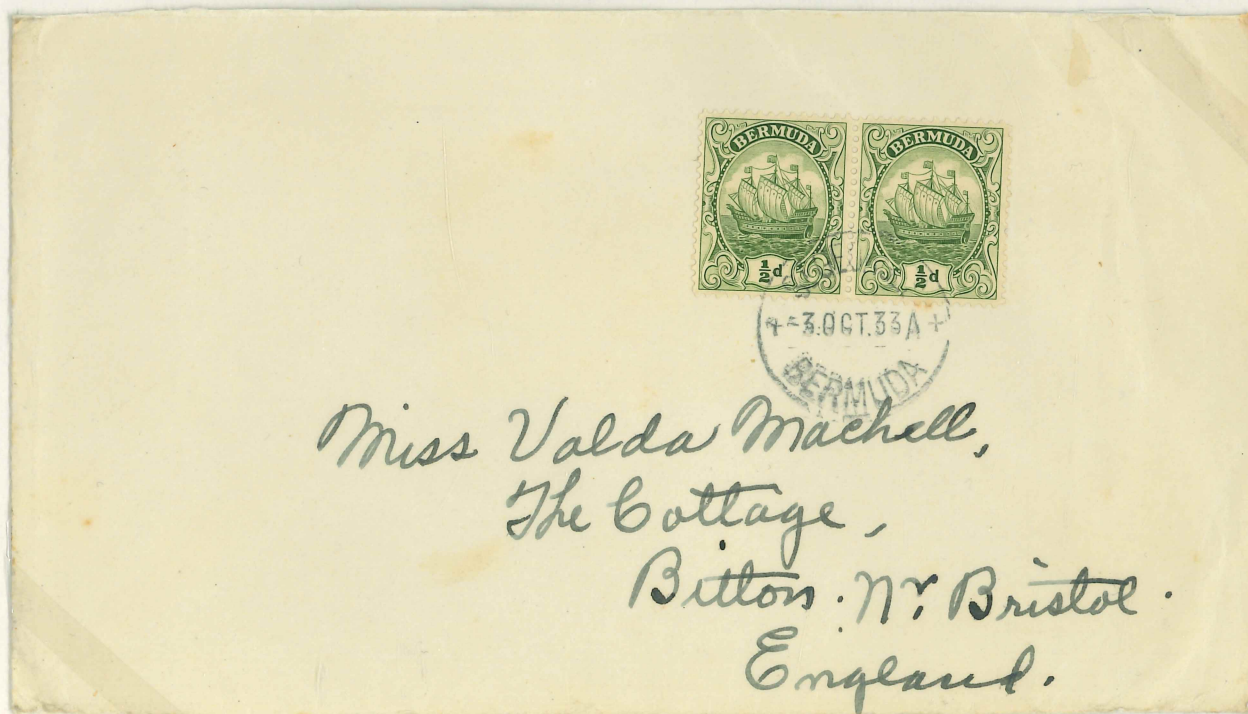 BERMUDA BERMUDA
½d ½d
+ -3 OCT. 33 A +
BERMUDA
Miss Valda Machell,
The Cottage,
Bitton. Nr. Bristol.
England.